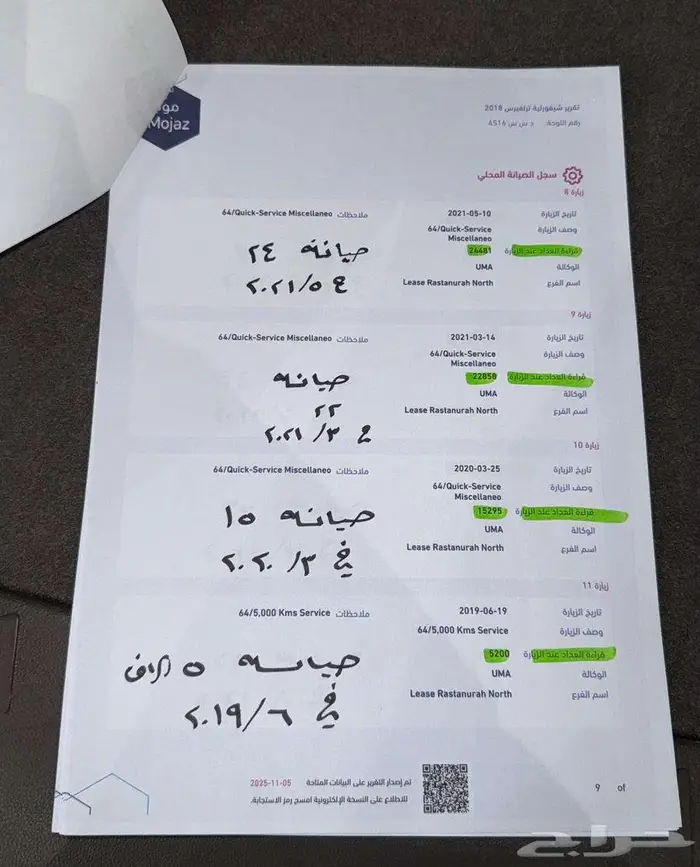 موجز
Mojaz
تقرير شيفورلية ترافيرس 2018
رقم اللوحة: د س س 4516
سجل الصيانة المحلي
زيارة 8
تاريخ الزيارة 2021-05-10 ملاحظات 64/Quick-Service Miscellaneo
وصف الزيارة 64/Quick-Service Miscellaneo
قراءة العداد عند الزيارة 24481
الوكالة UMA
اسم الفرع Lease Rastanurah North
صيانه ٢٤
ع ٢٠٢١/٥
زيارة 9
تاريخ الزيارة 2021-03-14 ملاحظات 64/Quick-Service Miscellaneo
وصف الزيارة 64/Quick-Service Miscellaneo
قراءة العداد عند الزيارة 22850
الوكالة UMA
اسم الفرع Lease Rastanurah North
صيانه
٢٢
ع ٢٠٢١/٣
زيارة 10
تاريخ الزيارة 2020-03-25 ملاحظات 64/Quick-Service Miscellaneo
وصف الزيارة 64/Quick-Service Miscellaneo
قراءة العداد عند الزيارة 15295
الوكالة UMA
اسم الفرع Lease Rastanurah North
صيانه ١٥
في ٢٠٢٠/٣
زيارة 11
تاريخ الزيارة 2019-06-19 ملاحظات 64/5,000 Kms Service
وصف الزيارة 64/5,000 Kms Service
قراءة العداد عند الزيارة 5200
الوكالة UMA
اسم الفرع Lease Rastanurah North
صيانه ٥ الاف
في ٢٠١٩/٦
تم إصدار التقرير على البيانات المتاحة 2025-11-05
للاطلاع على النسخة الإلكترونية امسح رمز الاستجابة.
9 of
حراج